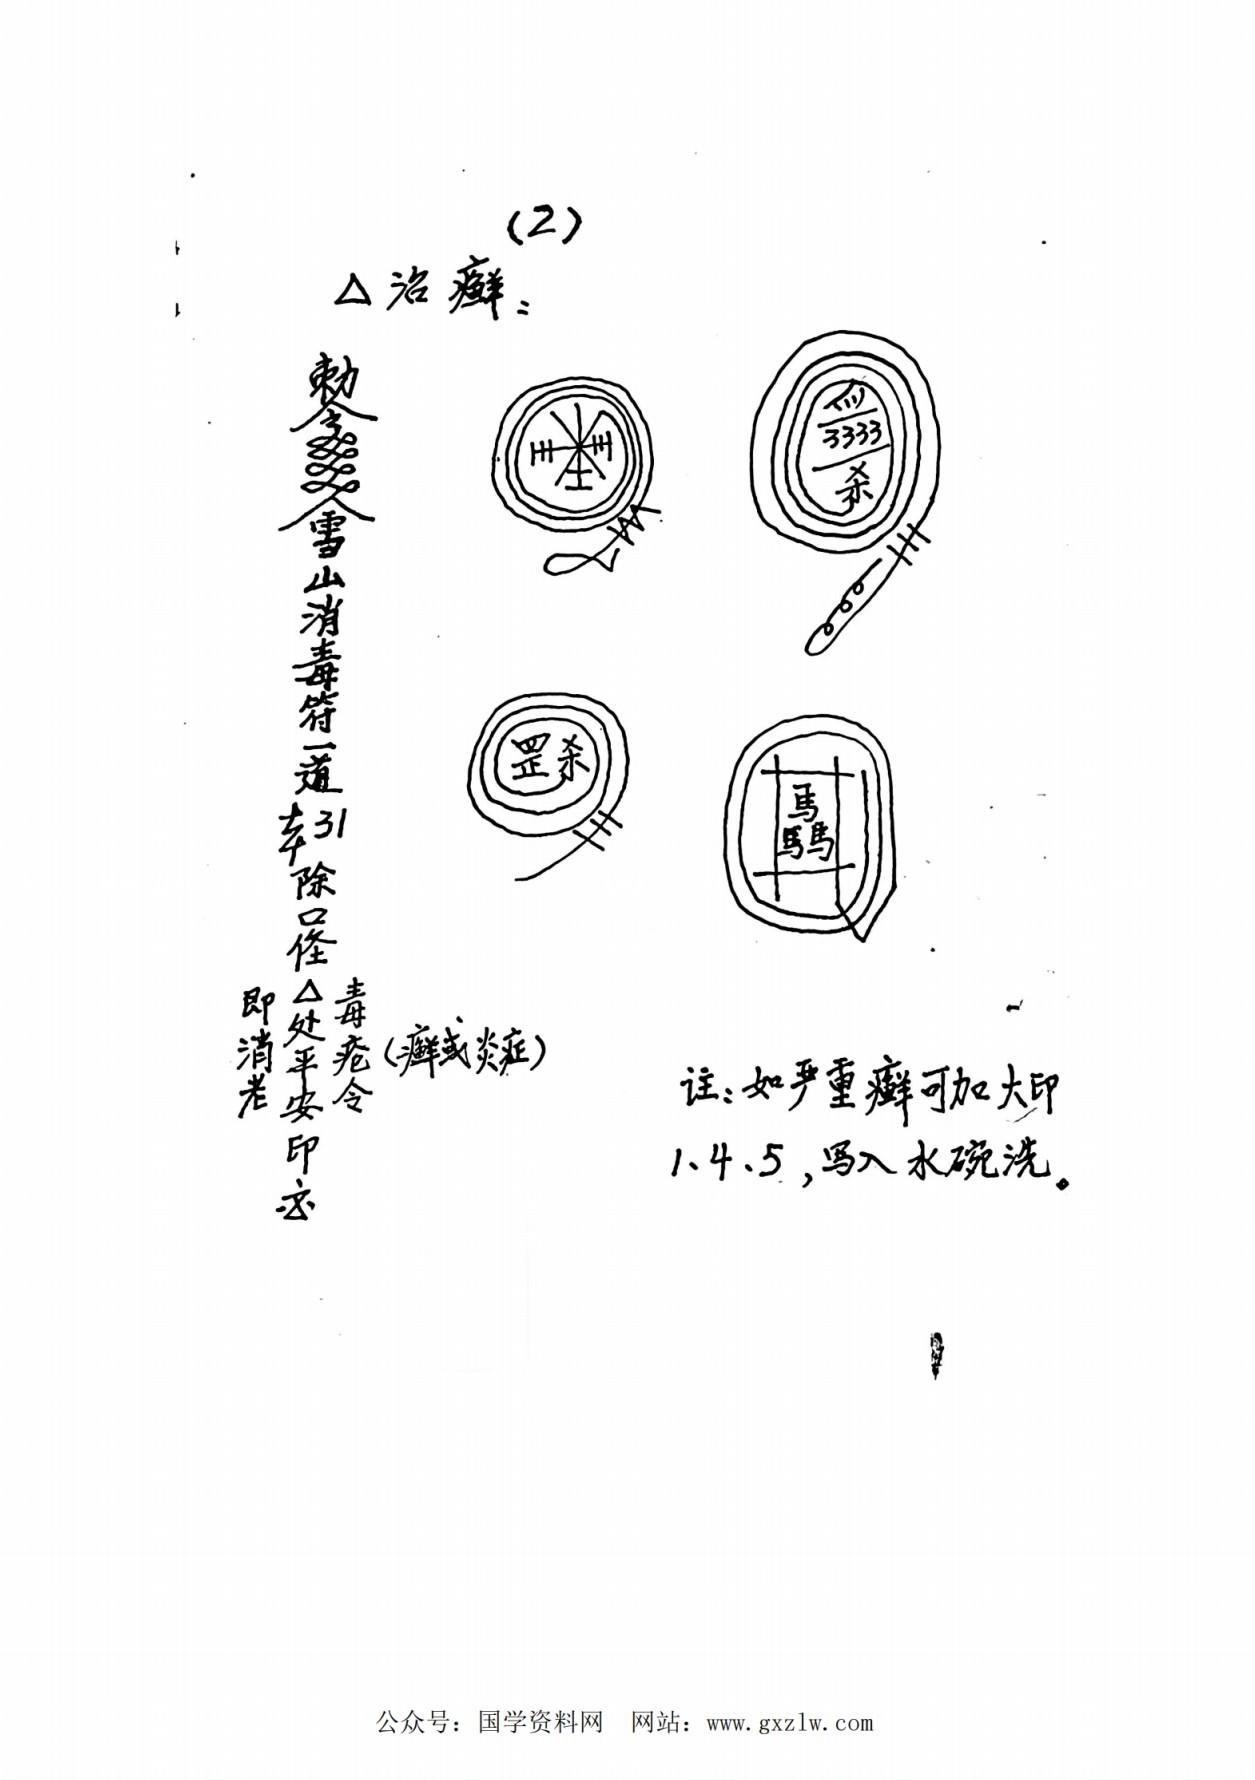 (2)
△治癣:
敕令雪山消毒符一道
奉引除口
△处平安印
毒疮令
即消
(癣或炎症)
3333
杀
罡杀
馬馬馬
註:如严重癣可加大印
1.4.5,写入水碗洗。
公众号:国学资料网 网站:www.gxzlw.com